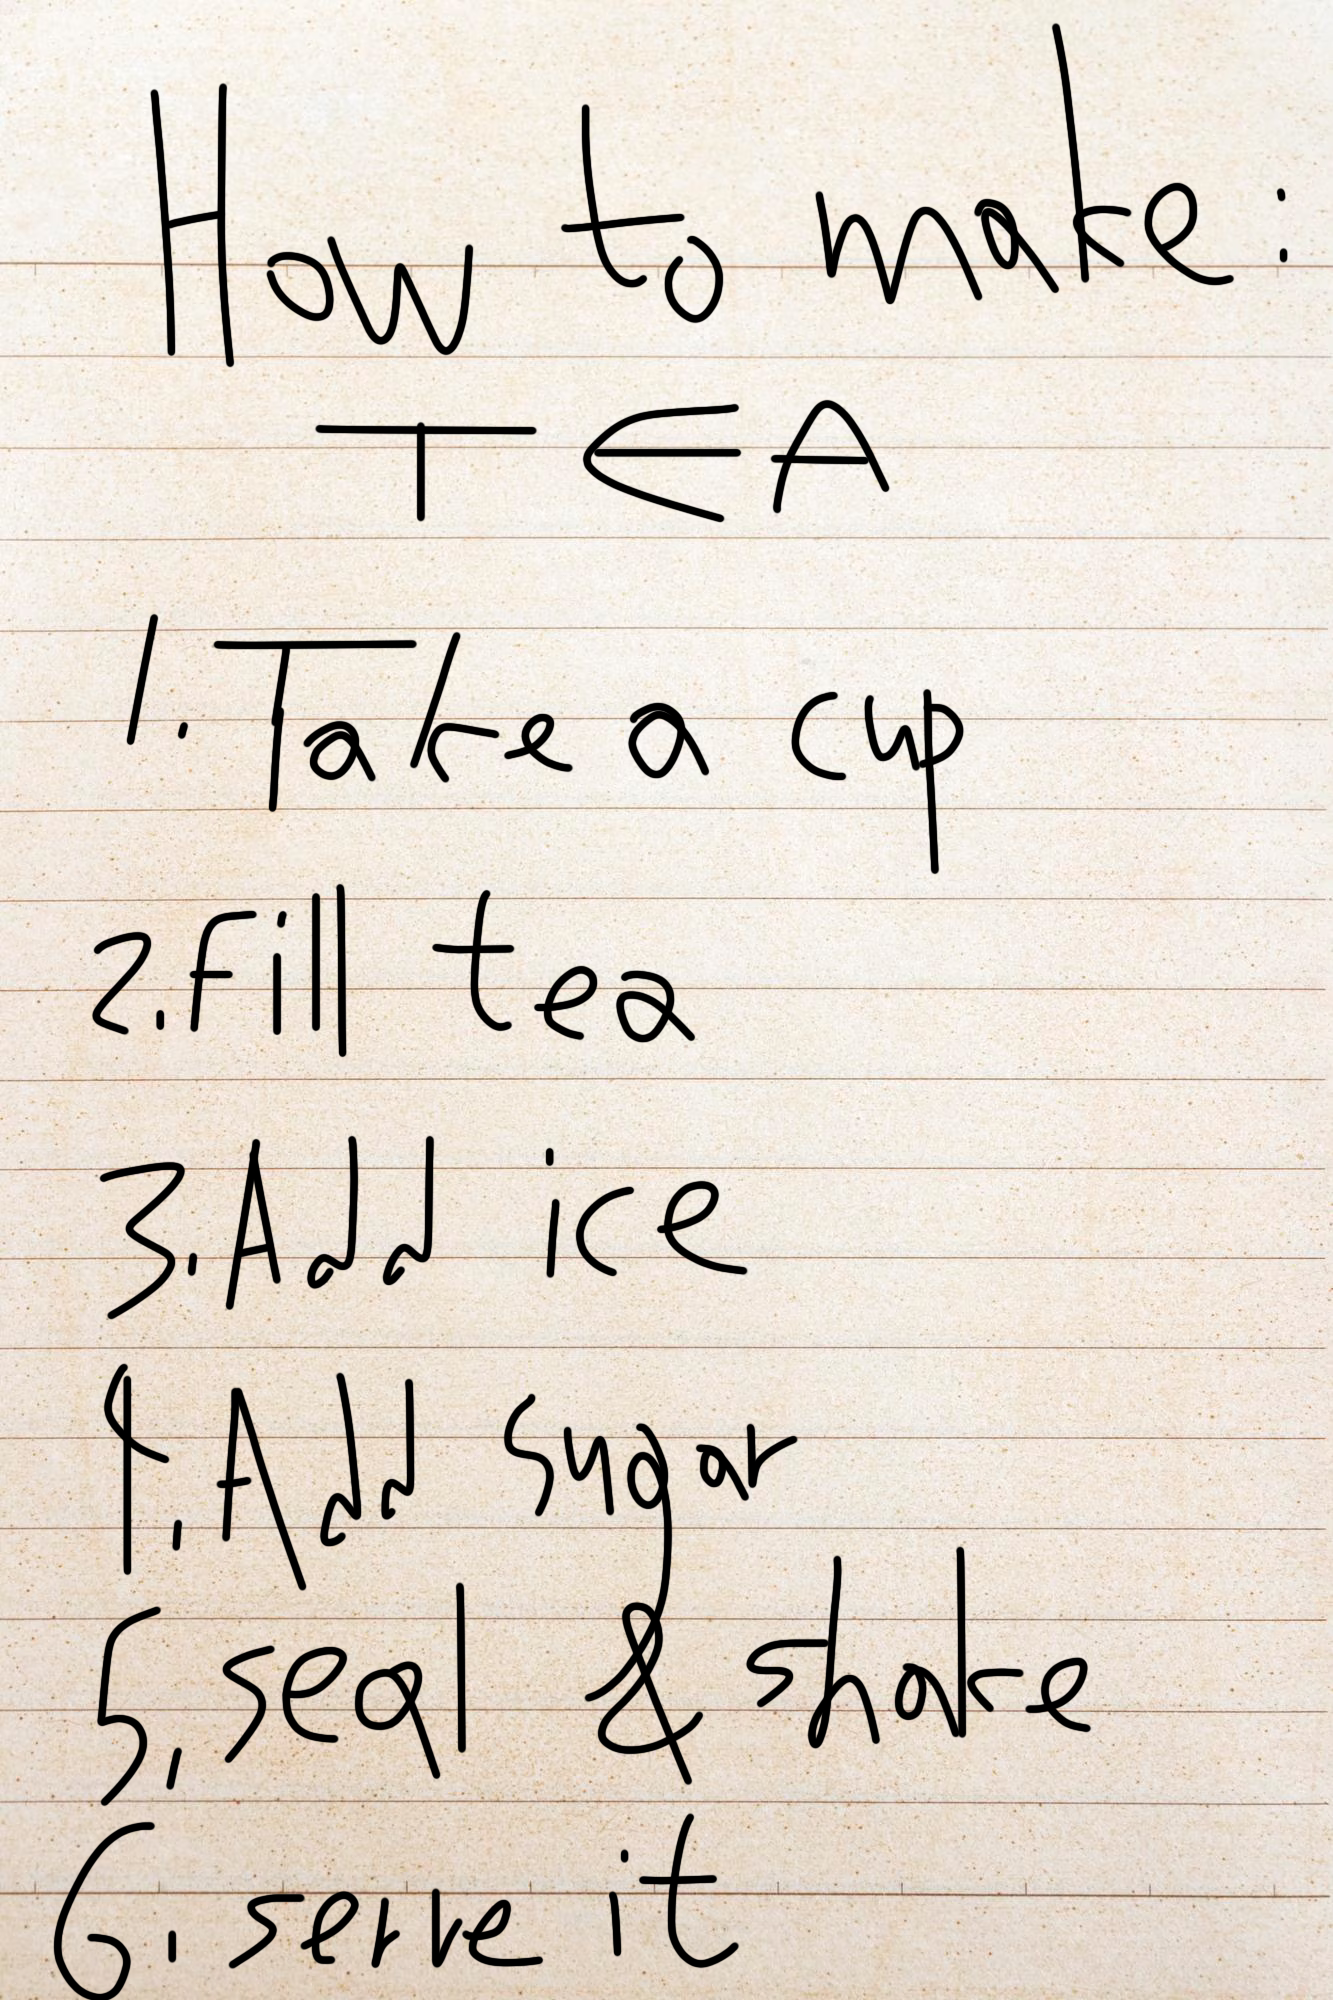 How to make:
TEA
1. Take a cup
2. Fill tea
3. Add ice
4. Add sugar
5. seal & shake
6. serve it